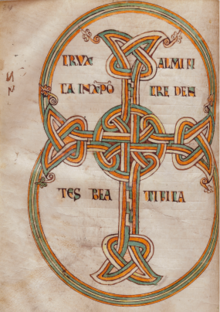 CRUX ALMI FI
CA IN XP̄O CRE DEN
TES BEA TIFICA